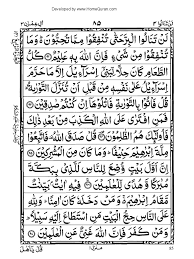 Developed by www.HomeQuran.com
٨٥
لَنْ تَنَالُوا الْبِرَّ حَتّٰى تُنْفِقُوْا مِمَّا تُحِبُّوْنَ وَمَا
تُنْفِقُوْا مِنْ شَيْءٍ فَاِنَّ اللّٰهَ بِهٖ عَلِيْمٌ كُلُّ
الطَّعَامِ كَانَ حِلًّا لِّبَنِيْ اِسْرَآءِيْلَ اِلَّا مَا حَرَّمَ
اِسْرَآءِيْلُ عَلٰى نَفْسِهٖ مِنْ قَبْلِ اَنْ تُنَزَّلَ التَّوْرٰىةُ
قُلْ فَأْتُوْا بِالتَّوْرٰىةِ فَاتْلُوْهَاۤ اِنْ كُنْتُمْ صٰدِقِيْنَ
فَمَنِ افْتَرٰى عَلَى اللّٰهِ الْكَذِبَ مِنْ بَعْدِ ذٰلِكَ
فَاُولٰٓئِكَ هُمُ الظّٰلِمُوْنَ قُلْ صَدَقَ اللّٰهُ فَاتَّبِعُوْا
مِلَّةَ اِبْرٰهِيْمَ حَنِيْفًا وَمَا كَانَ مِنَ الْمُشْرِكِيْنَ
اِنَّ اَوَّلَ بَيْتٍ وُّضِعَ لِلنَّاسِ لَلَّذِيْ بِبَكَّةَ
مُبٰرَكًا وَّهُدًى لِّلْعٰلَمِيْنَ فِيْهِ اٰيٰتٌۢ بَيِّنٰتٌ
مَّقَامُ اِبْرٰهِيْمَ وَمَنْ دَخَلَهٗ كَانَ اٰمِنًا وَلِلّٰهِ
عَلَى النَّاسِ حِجُّ الْبَيْتِ مَنِ اسْتَطَاعَ اِلَيْهِ سَبِيْلًا
وَمَنْ كَفَرَ فَاِنَّ اللّٰهَ غَنِيٌّ عَنِ الْعٰلَمِيْنَ